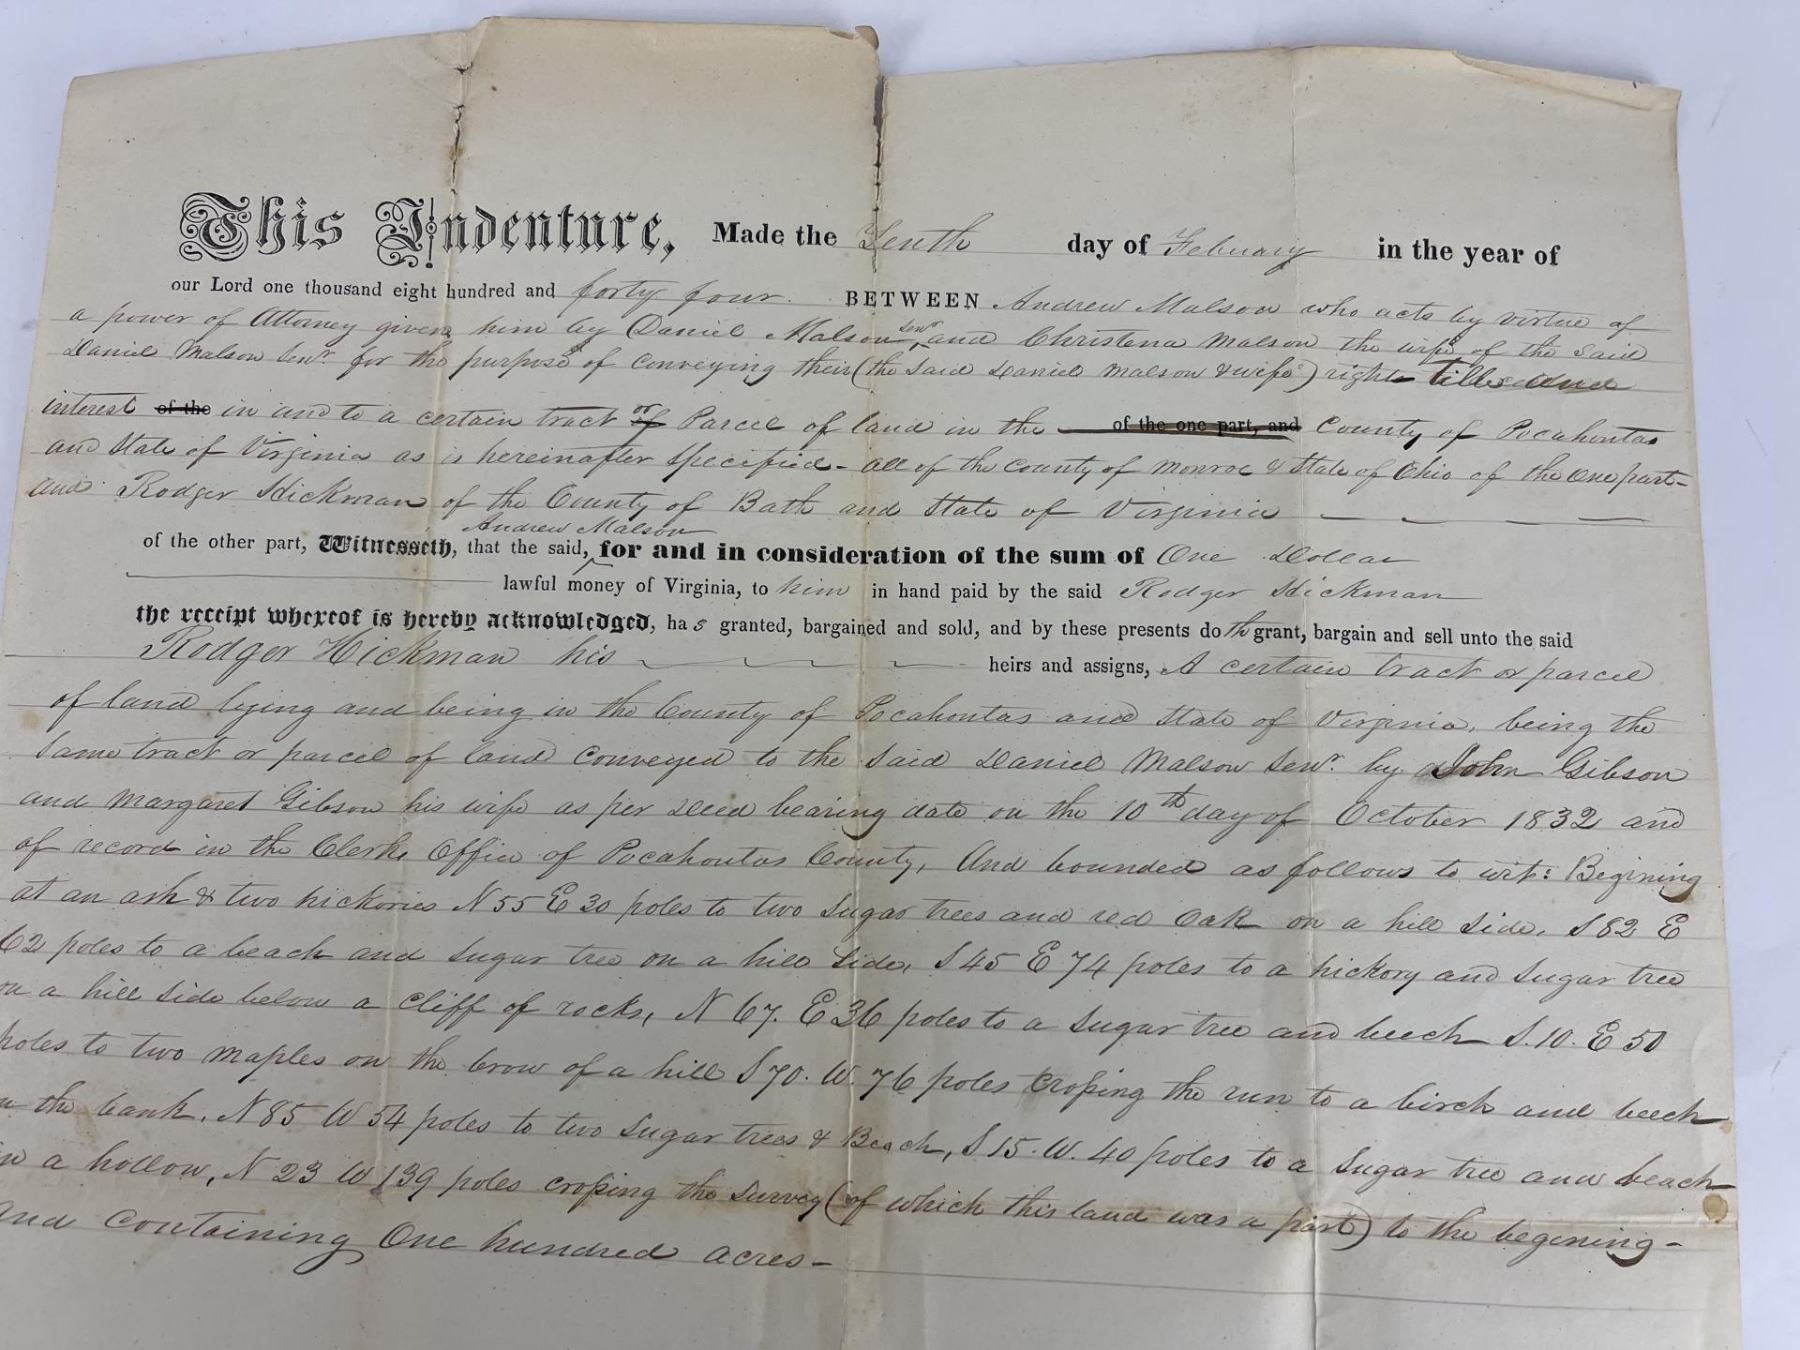 This Indenture, Made the Tenth day of Febuary in the year of
our Lord one thousand eight hundred and forty four. BETWEEN Andrew Malsow who acts by virtue of
a power of Attorney given him by Daniel Malsow Senr. and Christena Malsow the wife of the said
Daniel Malsow Senr. for the purpose of conveying their (the said Daniel Malsow & wife) right title and
interest of the in and to a certain tract or of Parcel of land in the of the one part, and County of Pocahontas
and State of Virginia as is hereinafter Specified - all of the County of Monroe & State of Ohio of the one part -
and Rodger Hickman of the County of Bath and State of Virginia
Andrew Malsow
of the other part, Witnesseth, that the said, for and in consideration of the sum of One Dollar
lawful money of Virginia, to him in hand paid by the said Rodger Hickman
the receipt whereof is hereby acknowledged, has granted, bargained and sold, and by these presents doth grant, bargain and sell unto the said
Rodger Hickman his heirs and assigns, A certain tract or parcel
of land lying and being in the County of Pocahontas and State of Virginia, being the
same tract or parcel of land conveyed to the said Daniel Malsow Senr. by John Gibson
and Margaret Gibson his wife as per Deed bearing date on the 10th day of October 1832 and
of record in the Clerks Office of Pocahontas County, And bounded as follows to wit: Begining
at an ash & two hickories N 55 E 30 poles to two Sugar trees and red Oak on a hill Side, S 82 E
62 poles to a beach and Sugar tree on a hill Side, S 45 E 74 poles to a hickory and Sugar tree
on a hill Side below a Cliff of rocks, N 67. E 36 poles to a Sugar tree and beech S. 10. E 50
poles to two maples on the brow of a hill S 70. W. 76 poles Croping the run to a birch and beech
n the bank, N 85 W 54 poles to two Sugar trees & Beach, S 15. W. 40 poles to a Sugar tree and beach
in a hollow, N 23 W 139 poles croping the Survey (of which this land was a part) to the begening -
And Containing One hundred acres -